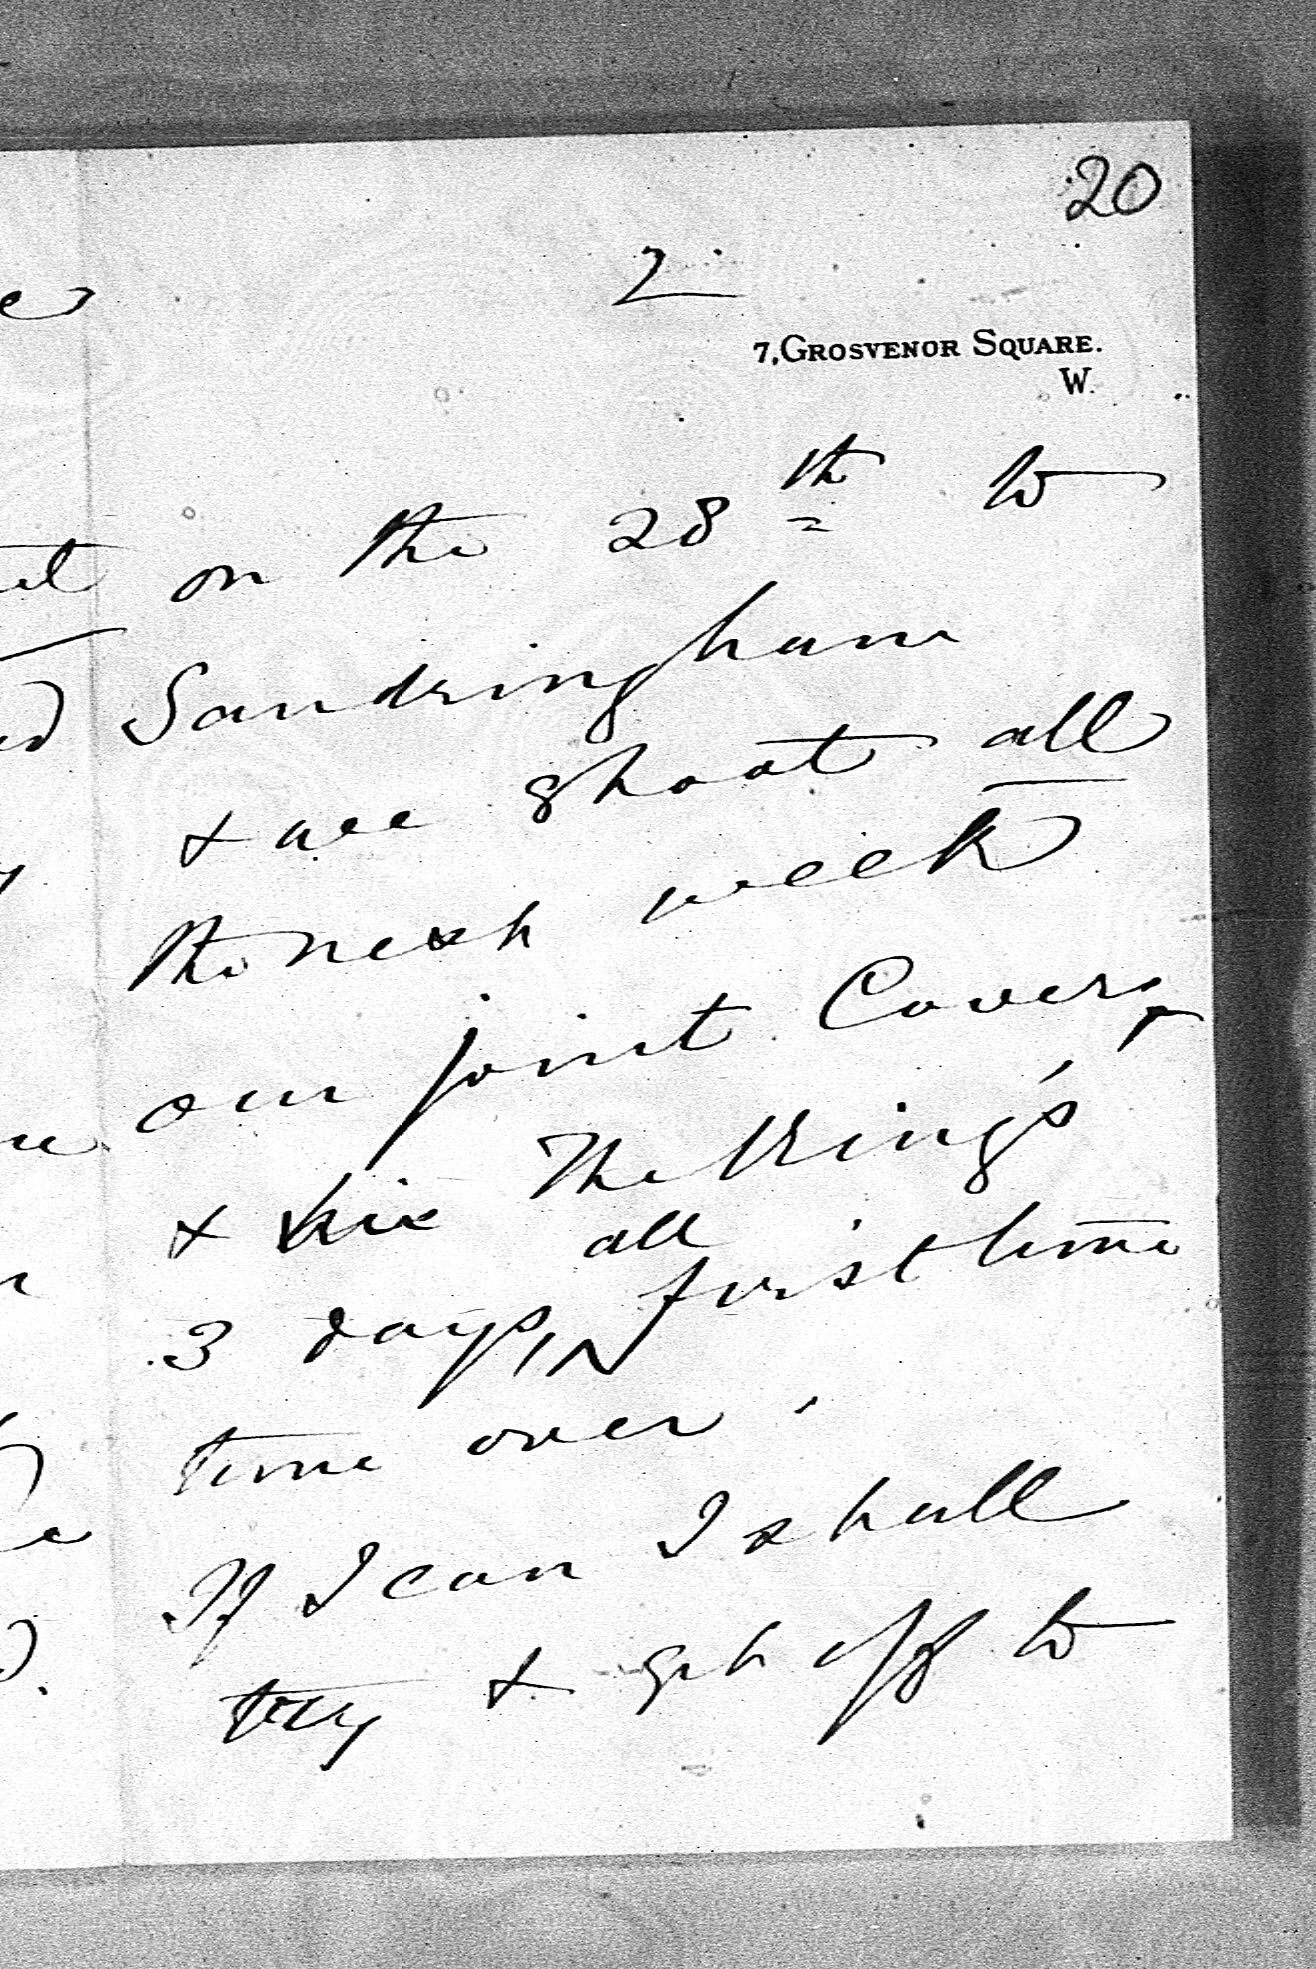 20
2
7, GROSVENOR SQUARE.
W.
on the 28th to
Sandringham
& we shoot all
the next week
our joint Coverts
& his The King's
all
3 days, first time
time over.
If I can I shall
try & get off to